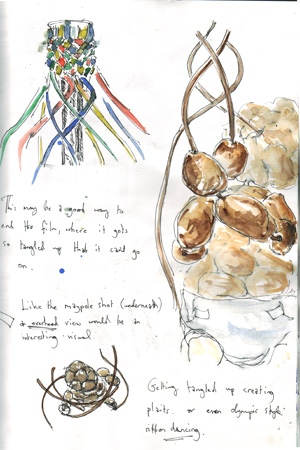 This may be a good way to
end the film, where it gets
so tangled up that it cant go
on.
Like the maypole shot (underneath)
overhead view would be an
interesting visual.
Getting tangled up creating
plaits. or even olympic style
ribbon dancing.